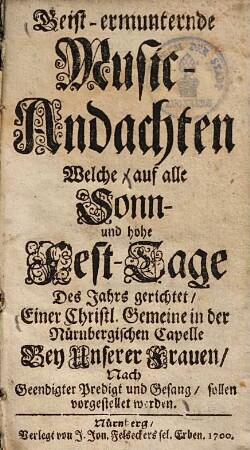 Geist-ermunternde
Music-
Andachten
Welche auf alle
Sonn-
und hohe
Fest-Tage
Des Jahrs gerichtet/
Einer Christl. Gemeine in der
Nürnbergischen Capelle
Bey Unserer Frauen/
Nach
Geendigter Predigt und Gesang/ sollen
vorgestellet werden.
Nürnberg/
Verlegt von J. Jon. Felseckers sel. Erben. 1700.